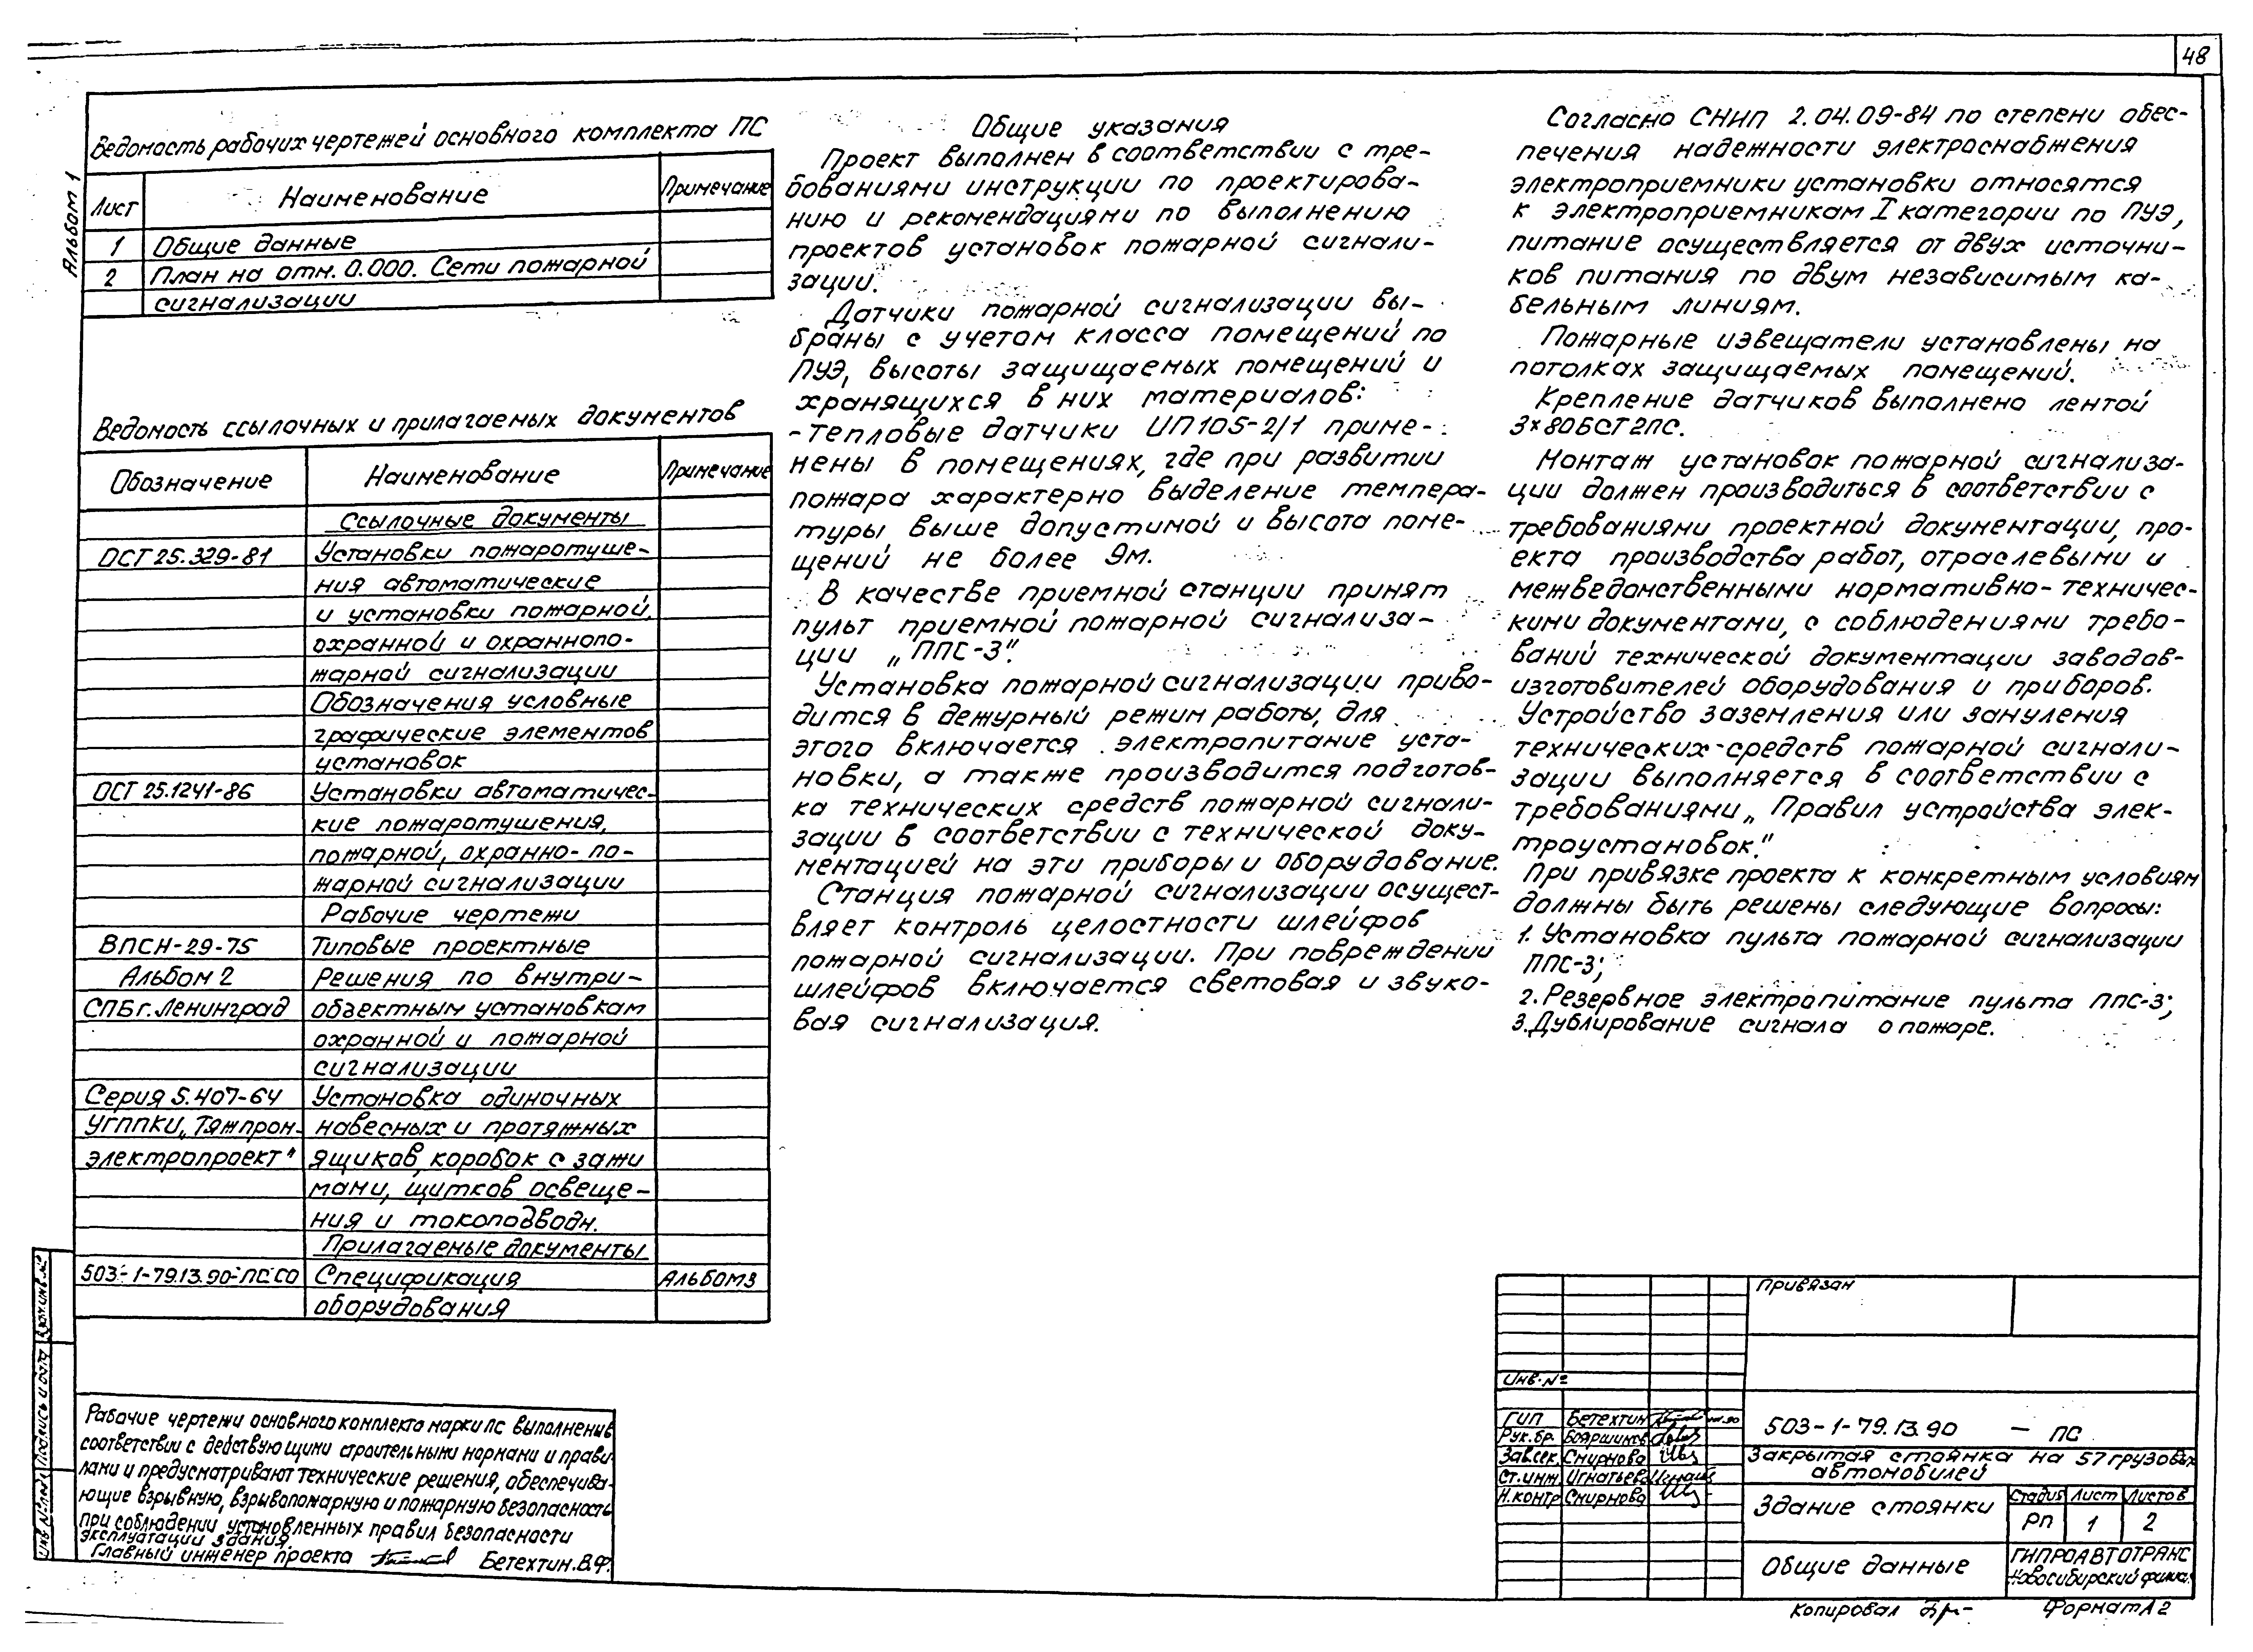 48
Альбом 1
Ведомость рабочих чертежей основного комплекта ПС
Лист Наименование Примечание
1 Общие данные
2 План на отм. 0.000. Сети пожарной
сигнализации
Ведомость ссылочных и прилагаемых документов
Обозначение Наименование Примечание
Ссылочные документы
ОСТ 25.329-81 Установки пожаротуше-
ния автоматические
и установки пожарной,
охранной и охраннопо-
жарной сигнализации
Обозначения условные
графические элементов
установок
ОСТ 25.1241-86 Установки автоматичес-
кие пожаротушения,
пожарной, охранно-по-
жарной сигнализации
Рабочие чертежи
ВПСН-29-75 Типовые проектные
Альбом 2 Решения по внутри-
СПБ г. Ленинград объектным установкам
охранной и пожарной
сигнализации
Серия 5.407-64 Установка одиночных
УГППКИ „Тяжпром- навесных и протяжных
электропроект" ящиков, коробок с зажи
мами, щитков освеще-
ния и токоподводн.
Прилагаемые документы
503-1-79.13.90-ПС.СО Спецификация Альбом 3
оборудования
Рабочие чертежи основного комплекта марки ПС выполнены в
соответствии с действующими строительными нормами и прави-
лами и предусматривают технические решения, обеспечива-
ющие взрывную, взрывопожарную и пожарную безопасность
при соблюдении установленных правил безопасности
эксплуатации здания.
Главный инженер проекта Бетехтин.В.Ф.
Общие указания
Проект выполнен в соответствии с тре-
бованиями инструкции по проектирова-
нию и рекомендациями по выполнению
проектов установок пожарной сигнали-
зации.
Датчики пожарной сигнализации вы-
браны с учетом класса помещений по
ПУЭ, высоты защищаемых помещений и
хранящихся в них материалов:
- тепловые датчики ИП105-2/1 приме-
нены в помещениях, где при развитии
пожара характерно выделение темпера-
туры выше допустимой и высота поме-
щений не более 9м.
В качестве приемной станции принят
пульт приемной пожарной сигнализа-
ции „ППС-3".
Установка пожарной сигнализации приво-
дится в дежурный режим работы, для
этого включается электропитание уста-
новки, а также производится подготов-
ка технических средств пожарной сигнали-
зации в соответствии с технической доку-
ментацией на эти приборы и оборудование.
Станция пожарной сигнализации осущест-
вляет контроль целостности шлейфов
пожарной сигнализации. При повреждении
шлейфов включается световая и звуко-
вая сигнализация.
Согласно СНИП 2.04.09-84 по степени обес-
печения надежности электроснабжения
электроприемники установки относятся
к электроприемникам I категории по ПУЭ,
питание осуществляется от двух источни-
ков питания по двум независимым ка-
бельным линиям.
Пожарные извещатели установлены на
потолках защищаемых помещений.
Крепление датчиков выполнено лентой
3×80БСТ2ПС.
Монтаж установок пожарной сигнализа-
ции должен производиться в соответствии с
требованиями проектной документации, про-
екта производства работ, отраслевыми и
межведомственными нормативно-техничес-
кими документами, с соблюдениями требо-
ваний технической документации заводов-
изготовителей оборудования и приборов.
Устройство заземления или зануления
технических средств пожарной сигнали-
зации выполняется в соответствии с
требованиями „Правил устройства элек-
троустановок."
При привязке проекта к конкретным условиям
должны быть решены следующие вопросы:
1. Установка пульта пожарной сигнализации
ППС-3;
2. Резервное электропитание пульта ППС-3;
3. Дублирование сигнала о пожаре.
Привязан
Инв. №
ГИП Бетехтин
Рук.бр. Бояршинов
Зав.сек. Смирнова
Ст.инж Игнатьева
Н.контр Смирнова
503-1-79.13.90 — ПС
Закрытая стоянка на 57 грузовых
автомобилей
Здание стоянки
Стадия Лист Листов
РП 1 2
Общие данные
ГИПРОАВТОТРАНС
Новосибирский филиал
Копировал
Формат А2
Инв № подл Подпись и дата Взам инв. №